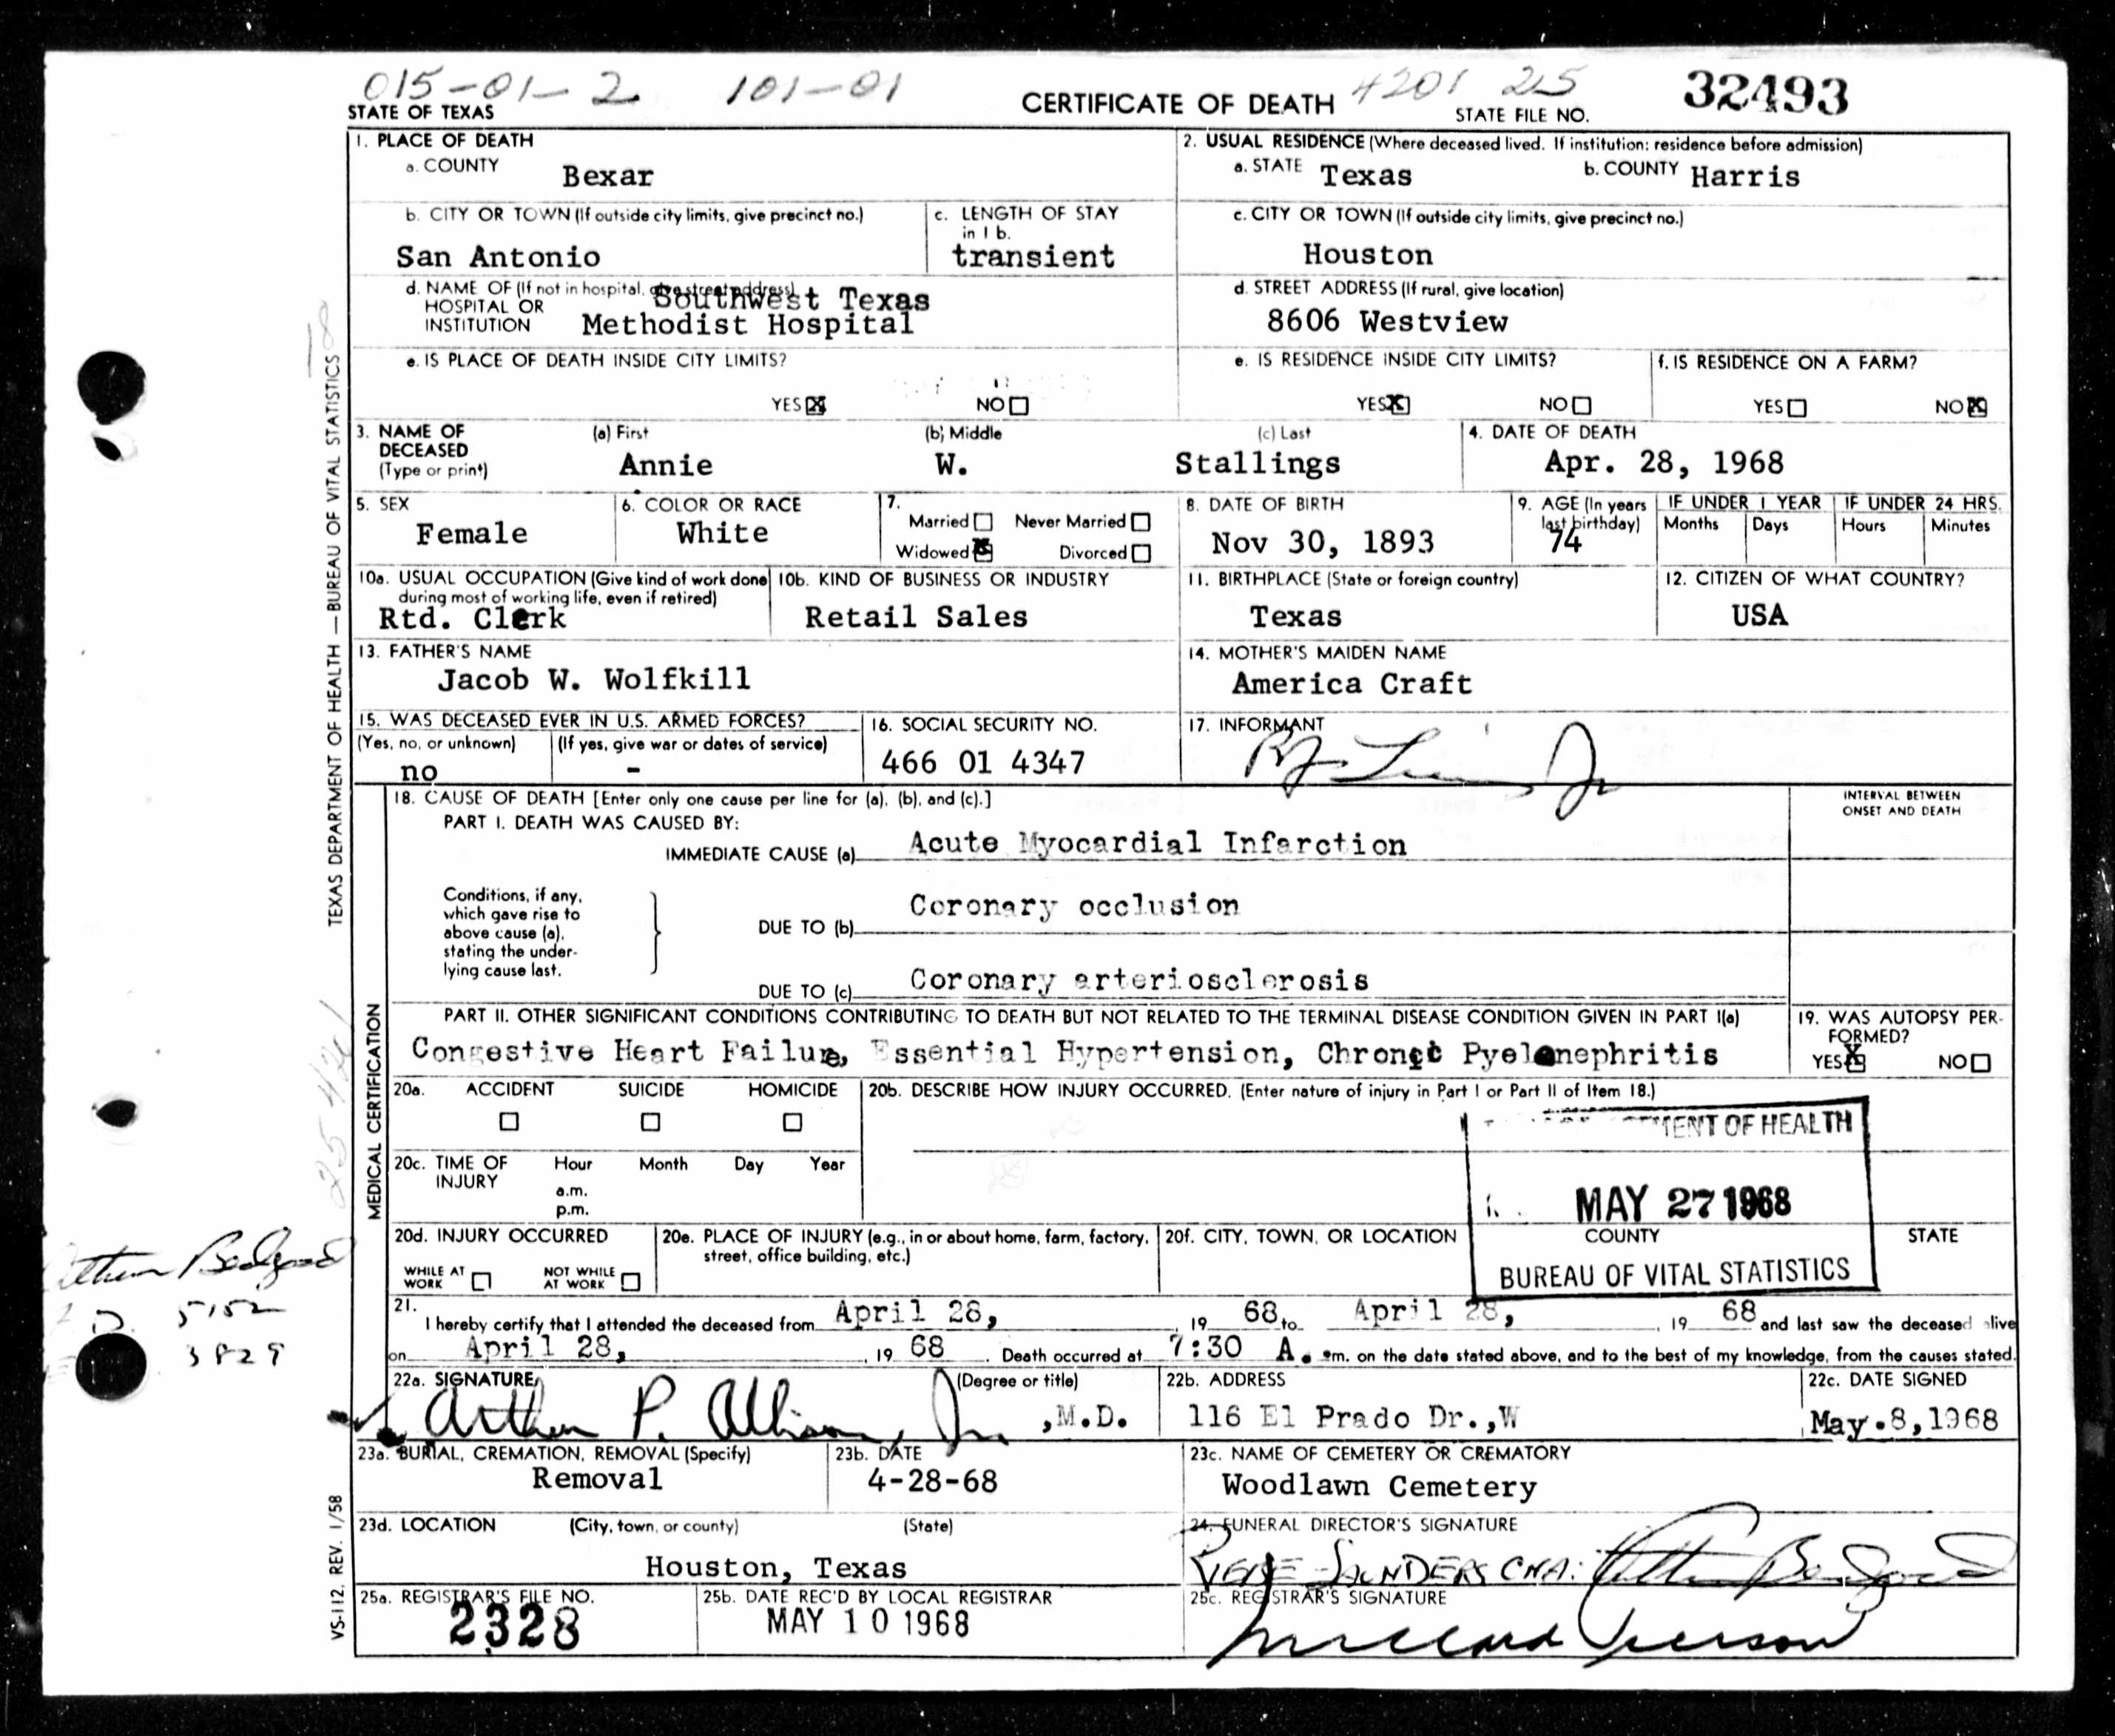 015-01-2 101-01 4201 25 32493
STATE OF TEXAS CERTIFICATE OF DEATH STATE FILE NO.
1. PLACE OF DEATH
a. COUNTY Bexar
2. USUAL RESIDENCE (Where deceased lived. If institution: residence before admission)
a. STATE Texas b. COUNTY Harris
b. CITY OR TOWN (If outside city limits, give precinct no.)
San Antonio
c. LENGTH OF STAY in 1 b.
transient
c. CITY OR TOWN (If outside city limits, give precinct no.)
Houston
d. NAME OF (If not in hospital, give street address)
HOSPITAL OR
INSTITUTION
Southwest Texas
Methodist Hospital
d. STREET ADDRESS (If rural, give location)
8606 Westview
e. IS PLACE OF DEATH INSIDE CITY LIMITS?
YES X NO
e. IS RESIDENCE INSIDE CITY LIMITS?
YES X NO
f. IS RESIDENCE ON A FARM?
YES NO X
3. NAME OF DECEASED (Type or print)
(a) First (b) Middle (c) Last
Annie W. Stallings
4. DATE OF DEATH
Apr. 28, 1968
5. SEX
Female
6. COLOR OR RACE
White
7.
Married Never Married
Widowed X Divorced
8. DATE OF BIRTH
Nov 30, 1893
9. AGE (In years last birthday)
74
IF UNDER 1 YEAR IF UNDER 24 HRS.
Months Days Hours Minutes
10a. USUAL OCCUPATION (Give kind of work done during most of working life, even if retired)
Rtd. Clerk
10b. KIND OF BUSINESS OR INDUSTRY
Retail Sales
11. BIRTHPLACE (State or foreign country)
Texas
12. CITIZEN OF WHAT COUNTRY?
USA
13. FATHER'S NAME
Jacob W. Wolfkill
14. MOTHER'S MAIDEN NAME
America Craft
15. WAS DECEASED EVER IN U.S. ARMED FORCES?
(Yes, no, or unknown) (If yes, give war or dates of service)
no -
16. SOCIAL SECURITY NO.
466 01 4347
17. INFORMANT
Jr
18. CAUSE OF DEATH [Enter only one cause per line for (a), (b), and (c).]
INTERVAL BETWEEN ONSET AND DEATH
PART I. DEATH WAS CAUSED BY:
IMMEDIATE CAUSE (a) Acute Myocardial Infarction
Conditions, if any, which gave rise to above cause (a), stating the under-lying cause last.
DUE TO (b) Coronary occlusion
DUE TO (c) Coronary arteriosclerosis
PART II. OTHER SIGNIFICANT CONDITIONS CONTRIBUTING TO DEATH BUT NOT RELATED TO THE TERMINAL DISEASE CONDITION GIVEN IN PART I(a)
Congestive Heart Failure, Essential Hypertension, Chronic Pyelonephritis
19. WAS AUTOPSY PER-FORMED?
YES X NO
20a. ACCIDENT SUICIDE HOMICIDE
20b. DESCRIBE HOW INJURY OCCURRED. (Enter nature of injury in Part I or Part II of Item 18.)
20c. TIME OF INJURY Hour Month Day Year
a.m.
p.m.
MENT OF HEALTH
MAY 27 1968
BUREAU OF VITAL STATISTICS
20d. INJURY OCCURRED
WHILE AT WORK NOT WHILE AT WORK
20e. PLACE OF INJURY (e.g., in or about home, farm, factory, street, office building, etc.)
20f. CITY, TOWN, OR LOCATION COUNTY STATE
21.
I hereby certify that I attended the deceased from April 28, 19 68 to April 28, 19 68 and last saw the deceased alive
on April 28, 19 68. Death occurred at 7:30 A. m. on the date stated above, and to the best of my knowledge, from the causes stated.
22a. SIGNATURE (Degree or title)
Arthur P. Allison, Jr. ,M.D.
22b. ADDRESS
116 El Prado Dr.,W
22c. DATE SIGNED
May.8,1968
23a. BURIAL, CREMATION, REMOVAL (Specify)
Removal
23b. DATE
4-28-68
23c. NAME OF CEMETERY OR CREMATORY
Woodlawn Cemetery
23d. LOCATION (City, town, or county) (State)
Houston, Texas
24. FUNERAL DIRECTOR'S SIGNATURE
SAUNDERS
25a. REGISTRAR'S FILE NO.
2328
25b. DATE REC'D BY LOCAL REGISTRAR
MAY 10 1968
25c. REGISTRAR'S SIGNATURE
TEXAS DEPARTMENT OF HEALTH — BUREAU OF VITAL STATISTICS
MEDICAL CERTIFICATION
VS-112. REV. 1/58
5152
3829